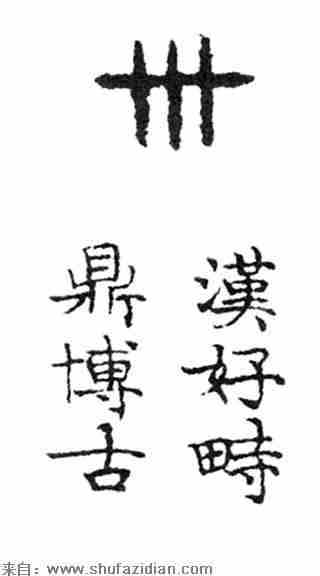 卅
漢好畤
鼎博古
来自：www.shufazidian.com